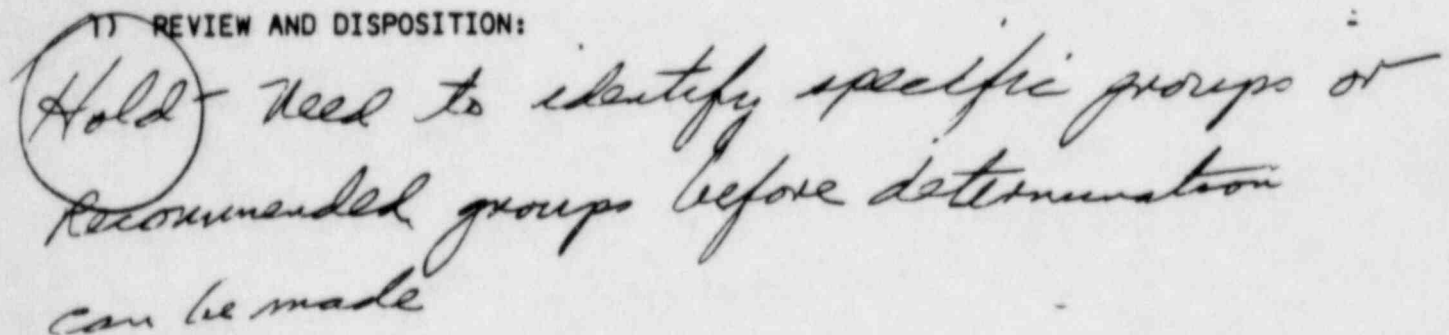 1) REVIEW AND DISPOSITION:
Hold - Need to identify specific groups or
Recommended groups before determination
can be made